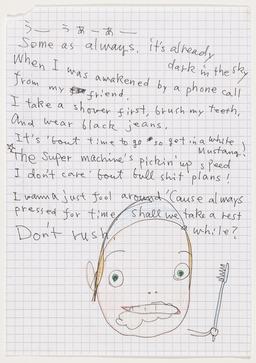 う〜 うぁーあー
Some as always. it's already
dark in the sky
When I was awakened by a phone call
from my friend.
I take a shover first, brush my teeth,
And wear black jeans.
It's 'bout time to go so get in a white
Mustang!
The Super machine's pickin' up speed
I don't care 'bout bull shit plans!
I wanna just fool around 'Cause always
pressed for time shall we take a rest
a while?
Don't rush.